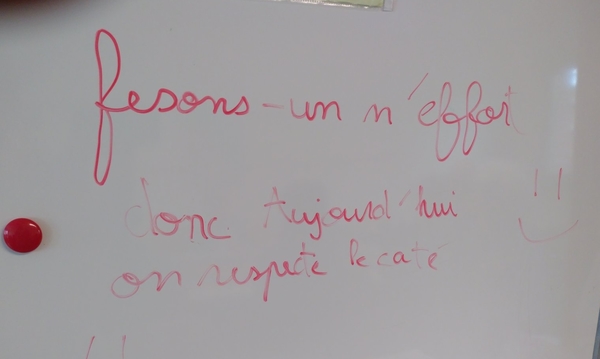 fesons-un n'effort
donc Aujourd'hui
on respecte le caté